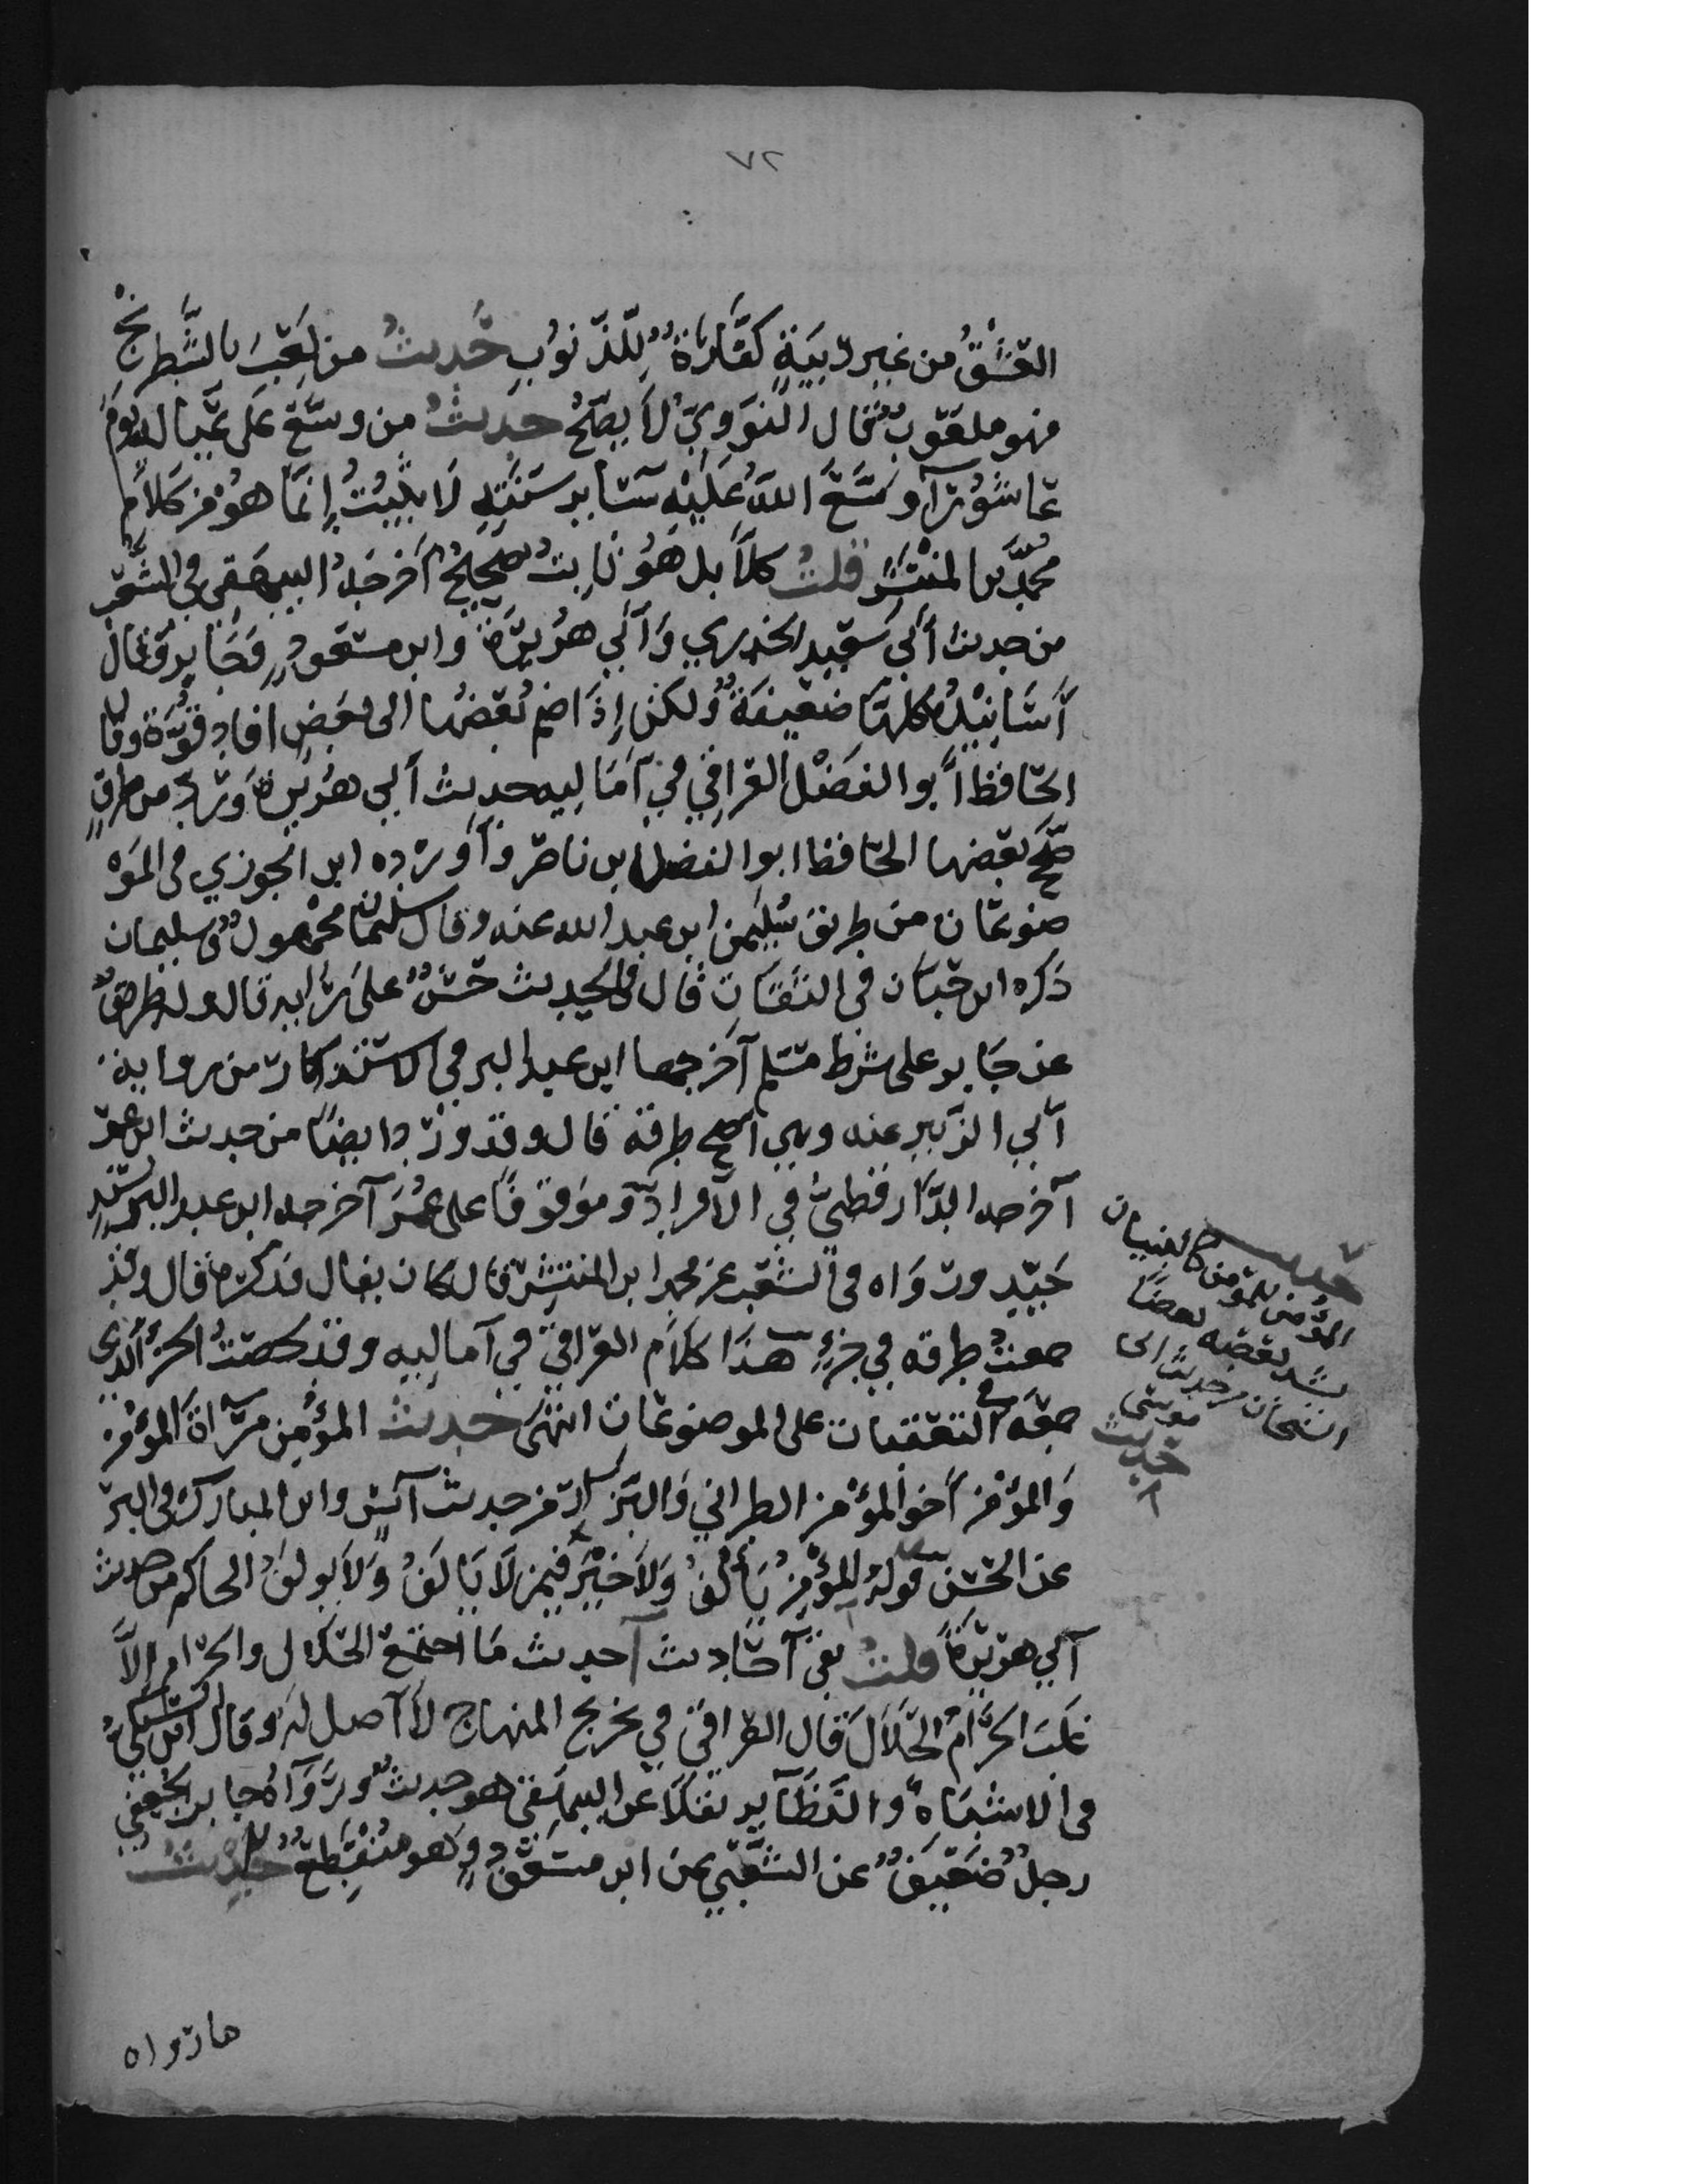 ٧٢
العشق من غير ريبة كفارة للذنوب حديث من لعب بالشطرنج
فهو ملعون قال النووي لا يصح حديث من وسع على عياله يوم
عاشورآ وسع الله عليه سآير سنته لا يثبت إنما هو من كلام
محمد بن المنتشر قلت كلا بل هو ثابت صحيح أخرجه البيهقي في الشعب
من حديث أبي سعيد الخدري وأبي هريرة وابن مسعود وجابر وقال
أسانيده كلها ضعيفة ولكن إذا ضم بعضها الى بعض افاد قوة وقال
الحافظ أبو الفضل العراقي في أماليه حديث أبي هريرة ورد من طرق
صحح بعضها الحافظ ابو الفضل ابن ناصر وأورده ابن الجوزي في المو
ضوعات من طريق سليمن ابن عبد الله عنه وقال سليمان مجهول وسليمان
ذكره ابن حبان في الثقات قال فالحديث حسن على رايه قال وله طرق
عن جابر على شرط مسلم أخرجها ابن عبد البر في الاستذكار من رواية
أبي الزبير عنه وهي أصح طرقه قال وقد ورد ايضا من حديث ابن عمر
أخرجه الدارقطني في الأفراد وموقوفا على عمر أخرجه ابن عبد البر بسند
جيد ورواه في الشعب عن محمد ابن المنتشر قال كان يقال فذكره قال وقد
جمعت طرقه في جزء هذا كلام العراقي في أماليه وقد لخصت الجزء الذي
جمعه في التعقبات على الموضوعات انتهى حديث المؤمن مرآة المؤمن
والمؤمن أخو المؤمن الطبراني والبزار من حديث أنس وابن المبارك في البر
عن الحسن قوله المؤمن يألف ولا خير فيمن لا يألف ولا يولف الحاكم من حديث
أبي هريرة قلت بقى أحاديث أحديث ما اجتمع الحلال والحرام إلا
غلب الحرام الحلال قال العراقي في تخريج المنهاج لا أصل له وقال ابن السبكي
في الاشباه والنظآير نقلا عن البيهقي هو حديث رواه جابر الجعفي
رجل ضعيف عن الشعبي عن ابن مسعود وهو منقطع حديث
ما رواه
حديث
المؤمن للمؤمن كالبنيان
يشد بعضه بعضا
الشيخان من حديث ابى
موسى
حديث